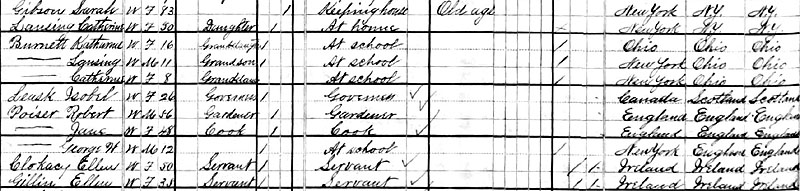 Gibson Sarah W F 83 1 Keeping house Old age New York N.Y. N.Y.
Lansing Catherine W F 50 Daughter 1 At home New York N.Y. N.Y.
Burnett Katharine W F 16 1 At school / Ohio Ohio Ohio
— Lansing W M 11 Grandson 1 At school / New York Ohio Ohio
— Catharine W F 8 1 At school / New York Ohio Ohio
Leask Isobel W F 26 Governess 1 Governess Canada Scotland Scotland
Poiser Robert W M 56 Gardener 1 Gardener England England England
— Jane W F 48 Cook 1 Cook England England England
— George H W M 12 1 At school / New York England England
Clokacy Ellen W F 50 Servant 1 Servant / / Ireland Ireland Ireland
Gillin Ellen W F 35 Servant 1 Servant / / Ireland Ireland Ireland